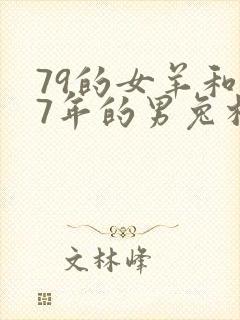 79的女羊和
7年的男兔
文林峰